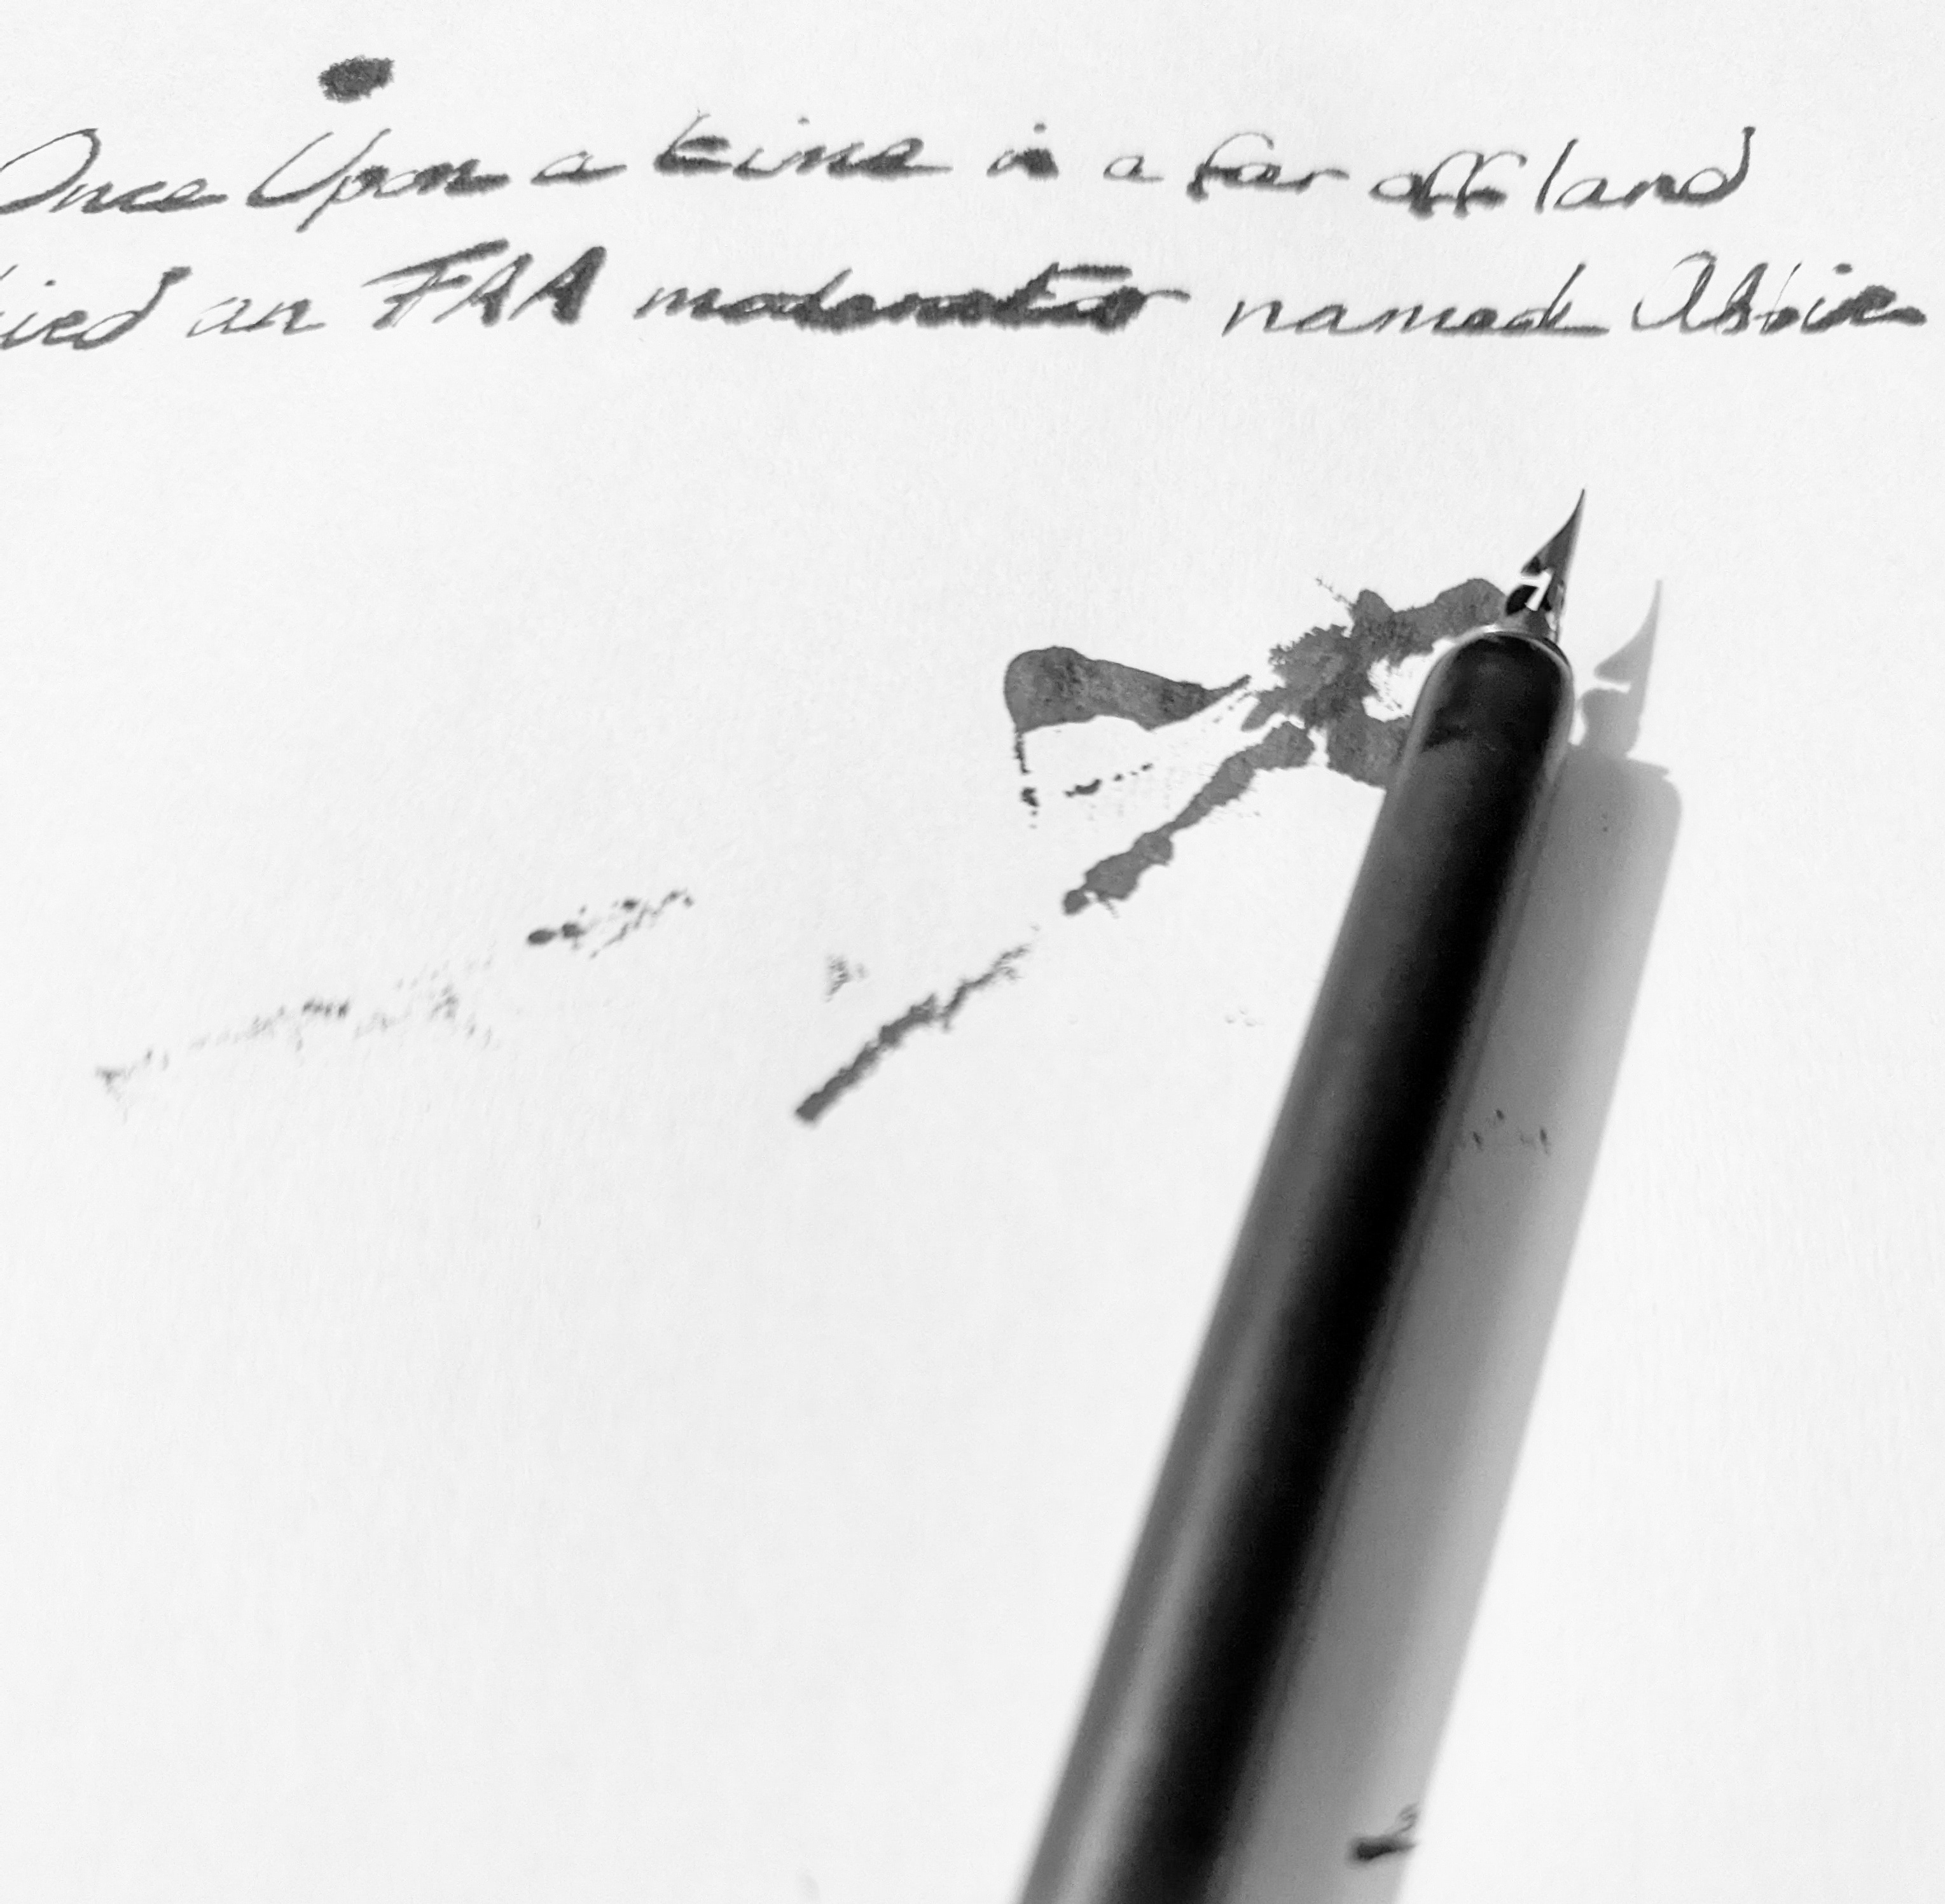 Once Upon a time in a far off land
ied an FAA moderator named Abbie